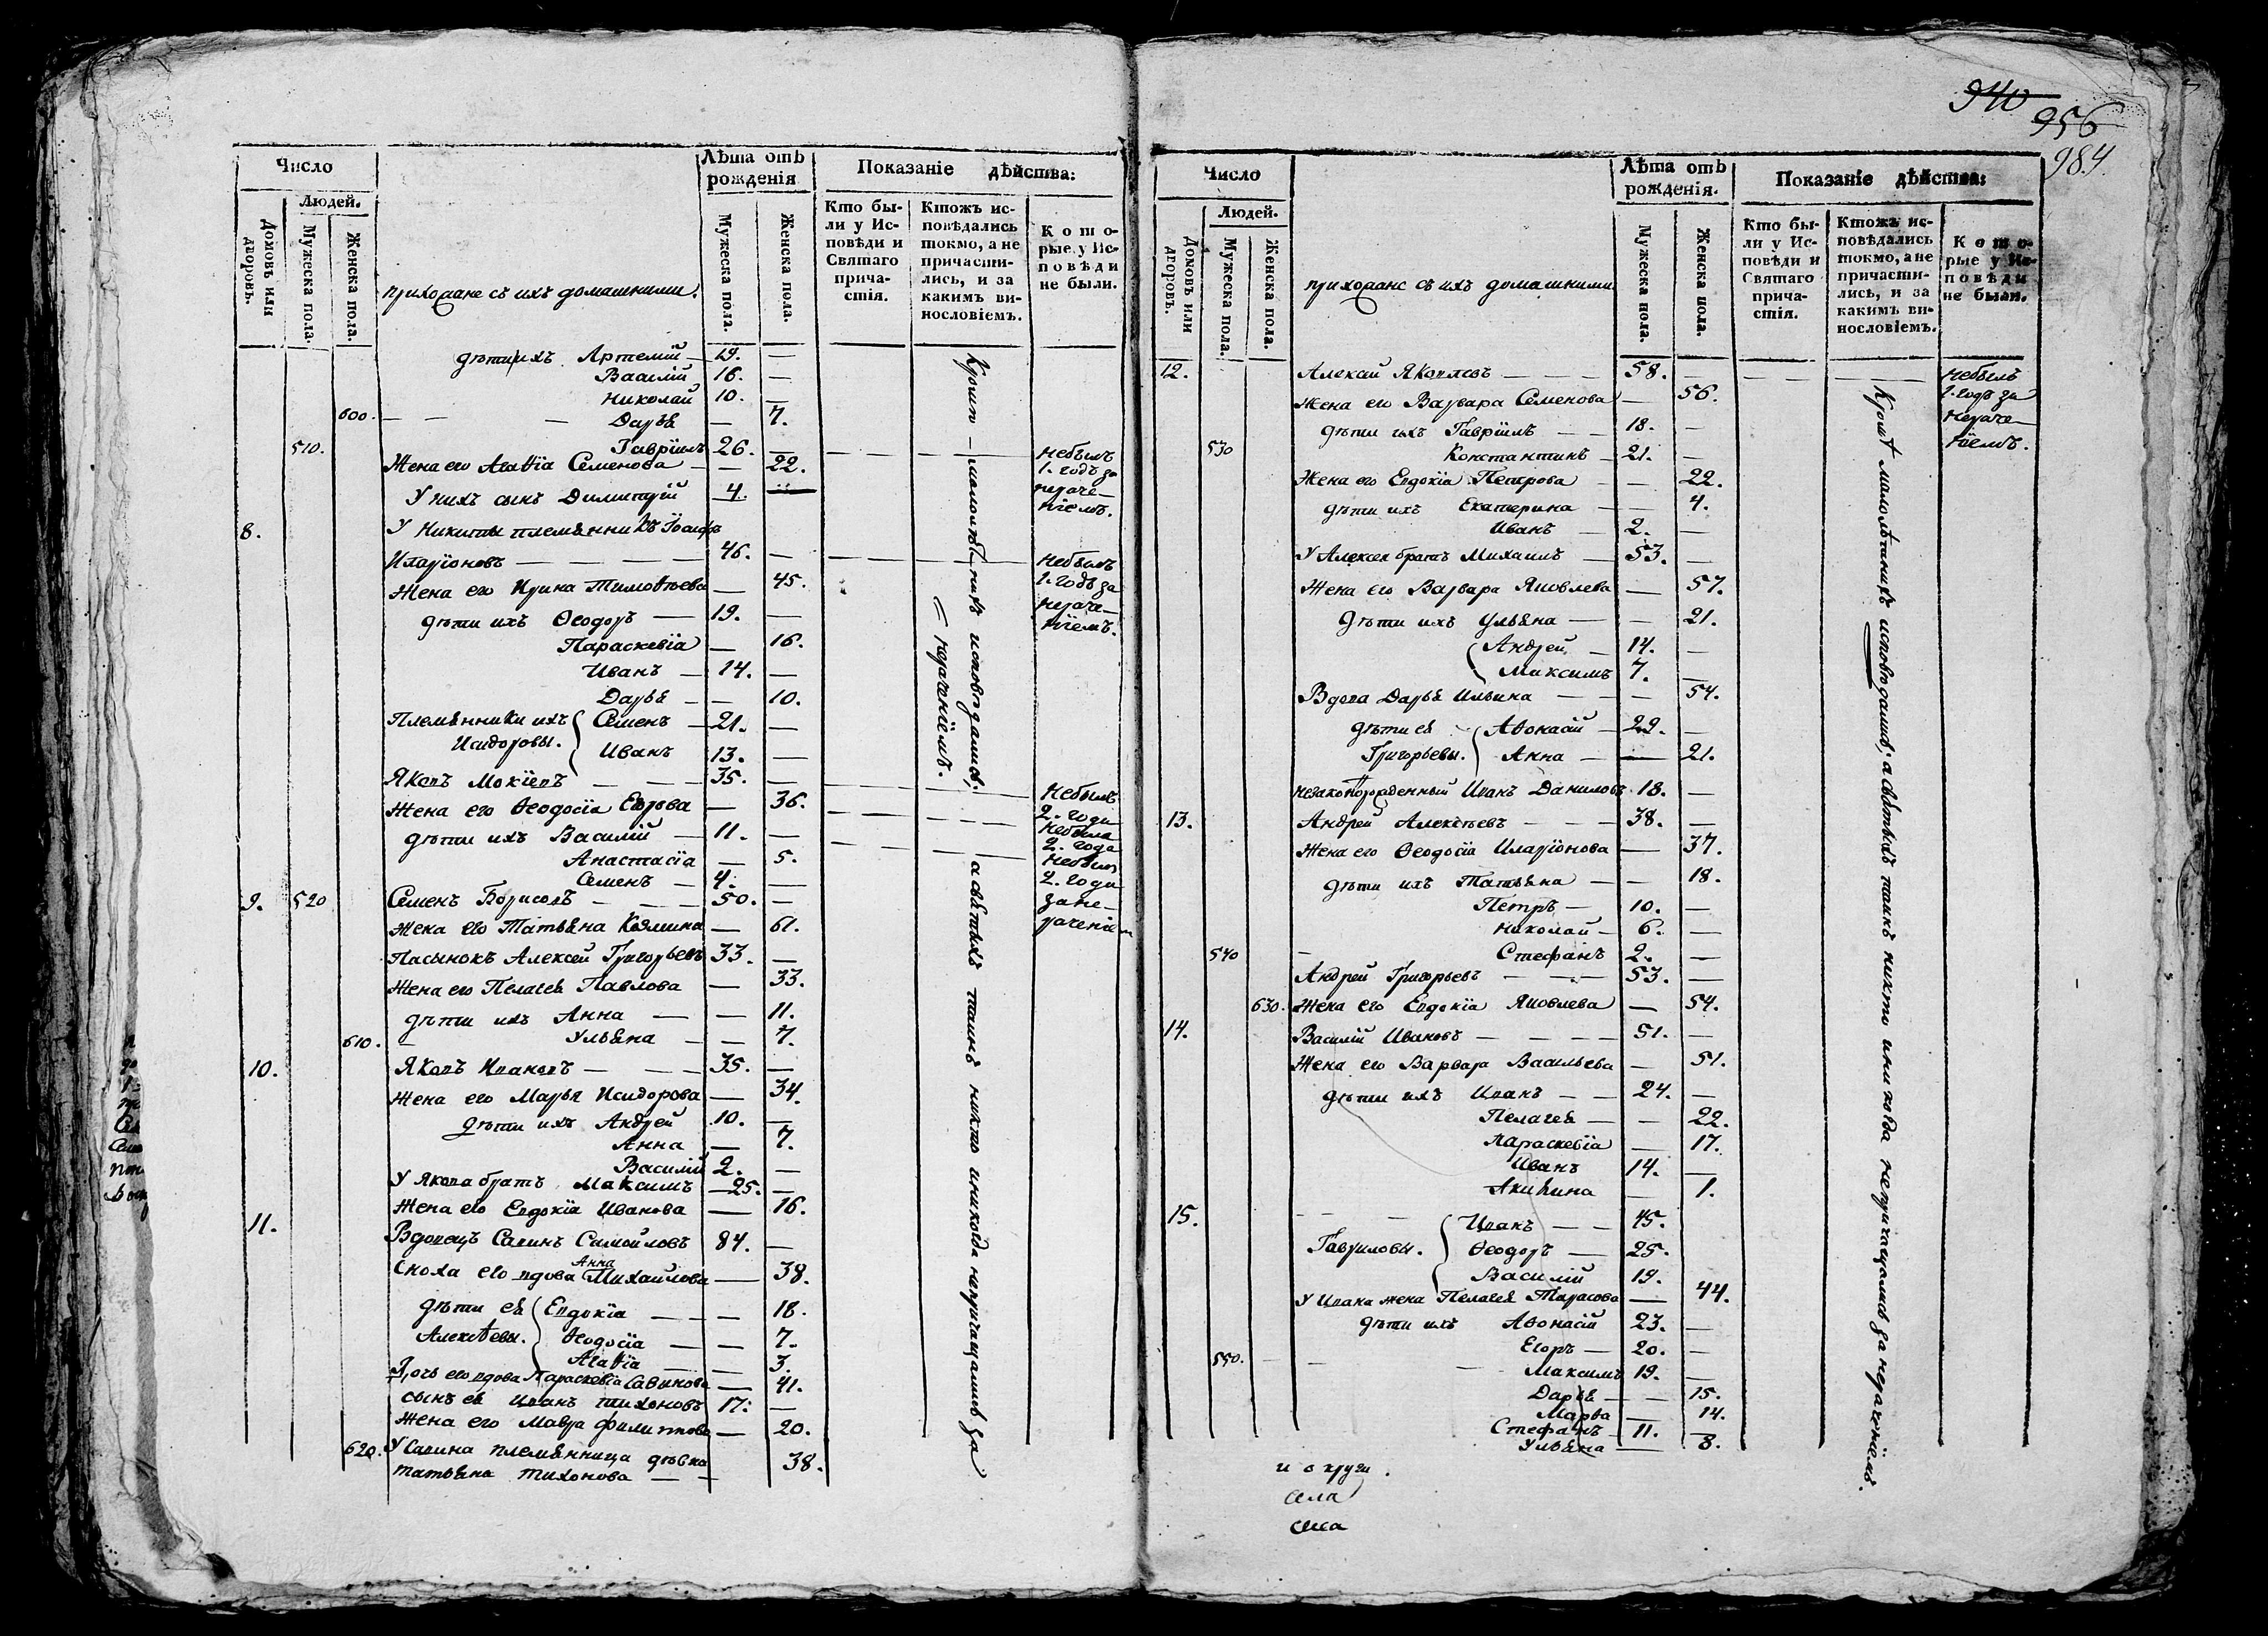 940
956
984
Число
Людей.
Домовъ или дворовъ.
Мужеска пола.
Женска пола.
прихожане съ ихъ домашними.
Лѣта отъ рожденія
Мужеска пола.
Женска пола.
Показаніе дѣйства:
Кто бы-
ли у Ис-
повѣди и
Святаго
прича-
стія.
Ктожъ ис-
повѣдались
токмо, а не
причасти-
лись, и за
какимъ ви-
нословіемъ.
Кото-
рые у Ис-
повѣди
не были.
дѣти ихъ Артемій — 19. —
Василій 16. —
Николай 10. —
600. — — — Дарья — 7.
510. Гавріилъ 26. — небылъ
Жена его Агаѳія Семенова — — 22. 1. годъ за
У нихъ сынъ Димитрій 4. — нераче-
ніемъ.
8. У Никиты племянникъ Іосифъ
Иларіоновъ — — 46. — небылъ
Жена его Ирина Тимоѳѣева — 45. 1. годъ за
дѣти ихъ Ѳеодоръ — 19. — нераче-
ніемъ.
Параскевіа — 16.
Иванъ — 14. —
Дарья — — 10.
Племянники ихъ Семенъ — 21. —
Исидоровы. Иванъ 13. —
Яковъ Мокіевъ — — 35. — небылъ
Жена его Ѳеодосіа Егорова — 36. 2. года
дѣти ихъ Василій — 11. — небыла
2. года
Анастасіа — 5. небылъ
Семенъ — 4. — 2. года
9. 520 Семенъ Борисовъ — — 50. — за не-
Жена его Татьяна Козмина — 61. раченіем
Пасынокъ Алексей Григорьевъ 33. —
Жена его Пелагея Павлова — 33.
дѣти ихъ Анна — — 11.
610. — Ульяна — — 7.
10. Яковъ Ивановъ — — 35. —
Жена его Марья Исидорова — 34.
дѣти ихъ Андрей 10. —
Анна — 7.
Василій 2. —
У Якова братъ Максимъ — 25. —
Жена его Евдокіа Иванова — 16.
11. Вдовецъ Савинъ Самойловъ 84. —
Сноха его вдова Анна Михайлова — 38.
дѣти ея Евдокіа — — 18.
Алексѣевы. Ѳеодосіа — — 7.
Агаѳіа — — 3.
Дочь его вдова Параскевіа Савинова — 41.
сынъ ея Иванъ Тихоновъ 17. —
Жена его Мавра Филиппова — 20.
620. У Савина племянница дѣвка
Татьяна Тихонова — — 38.
Кромѣ — малолѣтнихъ исповѣдались, а святыхъ таинъ никто и никогда непричащались за
= нераченіемъ.
Число
Людей.
Домовъ или дворовъ.
Мужеска пола.
Женска пола.
прихожане съ ихъ домашними
Лѣта отъ рожденія.
Мужеска пола.
Женска пола.
Показаніе дѣйства:
Кто бы-
ли у Ис-
повѣди и
Святаго
прича-
стія.
Ктожъ ис-
повѣдались
токмо, а не
причасти-
лись, и за
какимъ ви-
нословіемъ.
Кото-
рые у Ис-
повѣди
не были.
12. Алексей Яковлевъ — — — 58. — небылъ
Жена его Варвара Семенова — 56. 1. годъ за
дѣти ихъ Гавріилъ — — 18. — нераче-
530 Константинъ — 21. — ніемъ.
Жена его Евдокіа Петрова — — 22.
дѣти ихъ Екатерина — — 4.
Иванъ — 2. —
У Алексея братъ Михаилъ — 53. —
Жена его Варвара Яковлева — 57.
дѣти ихъ Ульяна — — 21.
Андрей — 14. —
Максимъ 7. —
Вдова Дарья Ильина — — — 54.
дѣти ея Аѳонасій — 22. —
Григорьевы. Анна — — 21.
незаконорожденный Иванъ Даниловъ 18. —
13. Андрей Алексѣевъ — — — 38. —
Жена его Ѳеодосіа Иларіонова — 37.
дѣти ихъ Татьяна — — 18.
Петръ — 10. —
Николай — 6. —
540 — Стефанъ 2. —
Андрей Григорьевъ — — — 53. —
630. Жена его Евдокіа Яковлева — 54.
14. Василій Ивановъ — — — — 51. —
Жена его Варвара Васильева — 51.
дѣти ихъ Иванъ — — 24. —
Пелагея — — 22.
Параскевіа — 17.
Иванъ 14. —
Акилина — 1.
15. — — — Иванъ — — 45.
Гавриловы. Ѳеодоръ — 25.
Василій 19.
У Ивана жена Пелагея Тарасова — 44.
дѣти ихъ Аѳонасій 23. —
Егоръ — 20. —
550. — — — Максимъ 19. —
Дарья — — 15.
Марѳа — 14.
Стефанъ — 11. —
Ульяна — 8.
Кромѣ малолѣтнихъ исповѣдались, а святыхъ таинъ никто и никогда непричащались за нераченіемъ.
села